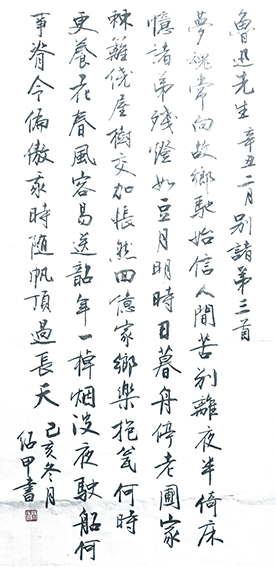 魯迅先生辛丑二月别諸弟三首
夢魂常向故鄉馳始信人間苦别離夜半倚床
憶諸弟殘燈如豆月明時日暮舟停老圃家
棘籬繞屋樹交加悵然回憶家鄉樂抱瓮何時
更養花春風容易送韶年一棹烟波夜駛船何
事脊令偏傲我時随帆頂過長天
己亥冬月
甲書